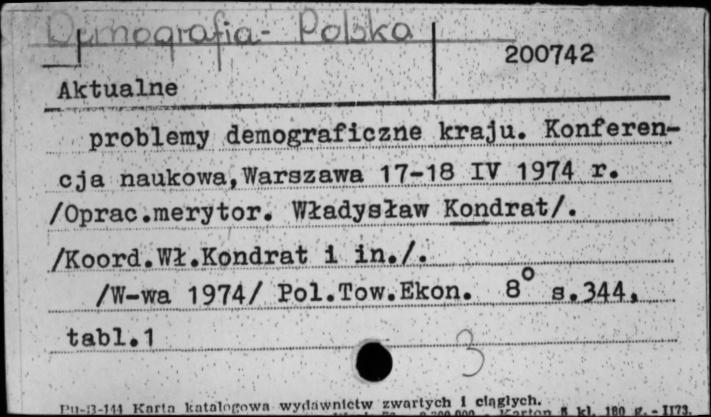 Demografia - Polska
200742
Aktualne
problemy demograficzne kraju. Konferen-
cja naukowa, Warszawa 17-18 IV 1974 r.
/Oprac.merytor. Władysław Kondrat/.
/Koord.Wł.Kondrat i in./.
/W-wa 1974/ Pol.Tow.Ekon. 8° s.344,
tabl.1
3
Pu-B-144 Karta katalogowa wydawnictw zwartych i ciągłych.
Karton kl. 180 g.